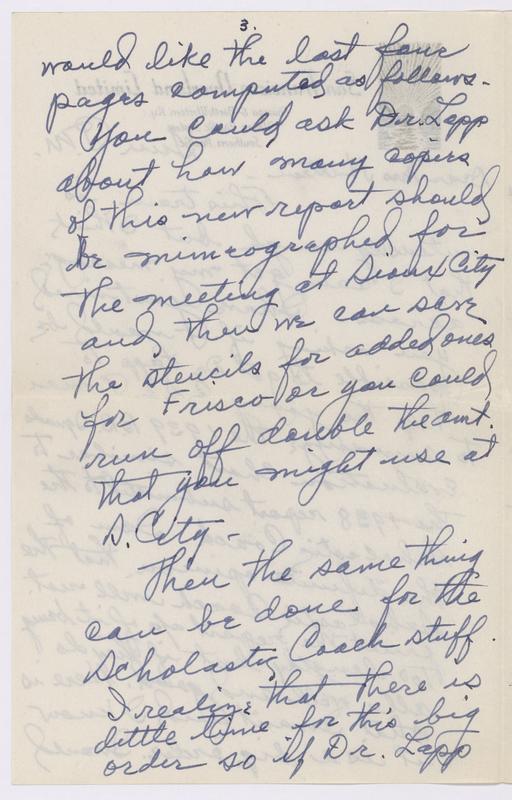 3.
would like the last four
pages computed as follows -
You could ask Dr. Lapp
about how many copies
of this new report should
be mimeographed for
the meeting at Sioux City
and then we can save
the stencils for added ones
for Frisco or you could
run off double the amt.
that you might use at
S. City -
Then the same thing
can be done for the
Scholastic Coach stuff.
I realize that there is
little time for this big
order so if Dr. Lapp